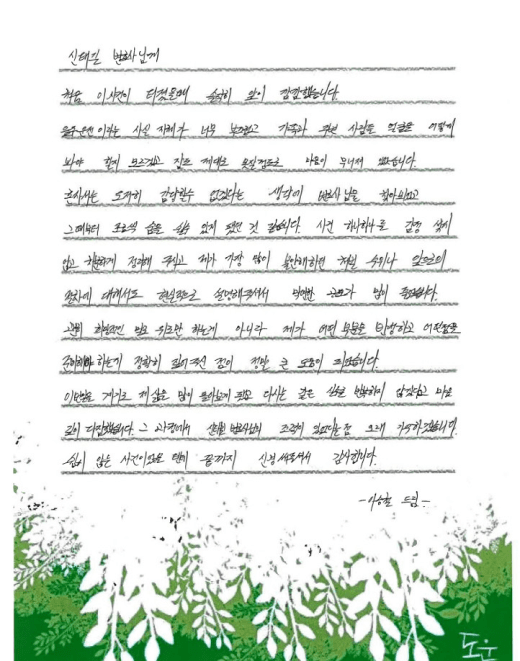 신태길 변호사님께
처음 이 사건이 터졌을때 솔직히 앞이 캄캄했습니다.
음주운전이라는 사실 자체가 너무 부끄럽고 가족과 주변 사람들 얼굴을 어떻게
봐야 할지 모르겠고 잠도 제대로 못잘정도로 마음이 무너져 있었습니다.
혼자서는 도저히 감당할수 없겠다는 생각에 변호사님을 찾아뵈었고
그때부터 조금씩 숨을 쉴수 있게 됐던 것 같습니다. 사건 하나하나를 감정 섞지
않고 차분하게 정리해 주시고 제가 가장 많이 불안해하던 처벌 수위나 앞으로의
절차에 대해서도 현실적으로 설명해주셔서 막연한 공포가 많이 줄었습니다.
그냥 희망적인 말로 위로만 하는게 아니라 제가 어떤 부분을 반성하고 어떤점을
준비해야 하는지 정확히 짚어주신 점이 정말 큰 도움이 되었습니다.
이번일을 계기로 제 삶을 많이 돌아보게 됐고 다시는 같은 실수를 반복하지 않겠다고 마음
깊이 다짐했습니다. 그 과정에서 신태길 변호사님의 조력이 있었다는 점 오래 기억하겠습니다.
쉽지 않은 사건이었을 텐데 끝까지 신경써주셔서 감사합니다.
-이승훈 드림-
도운